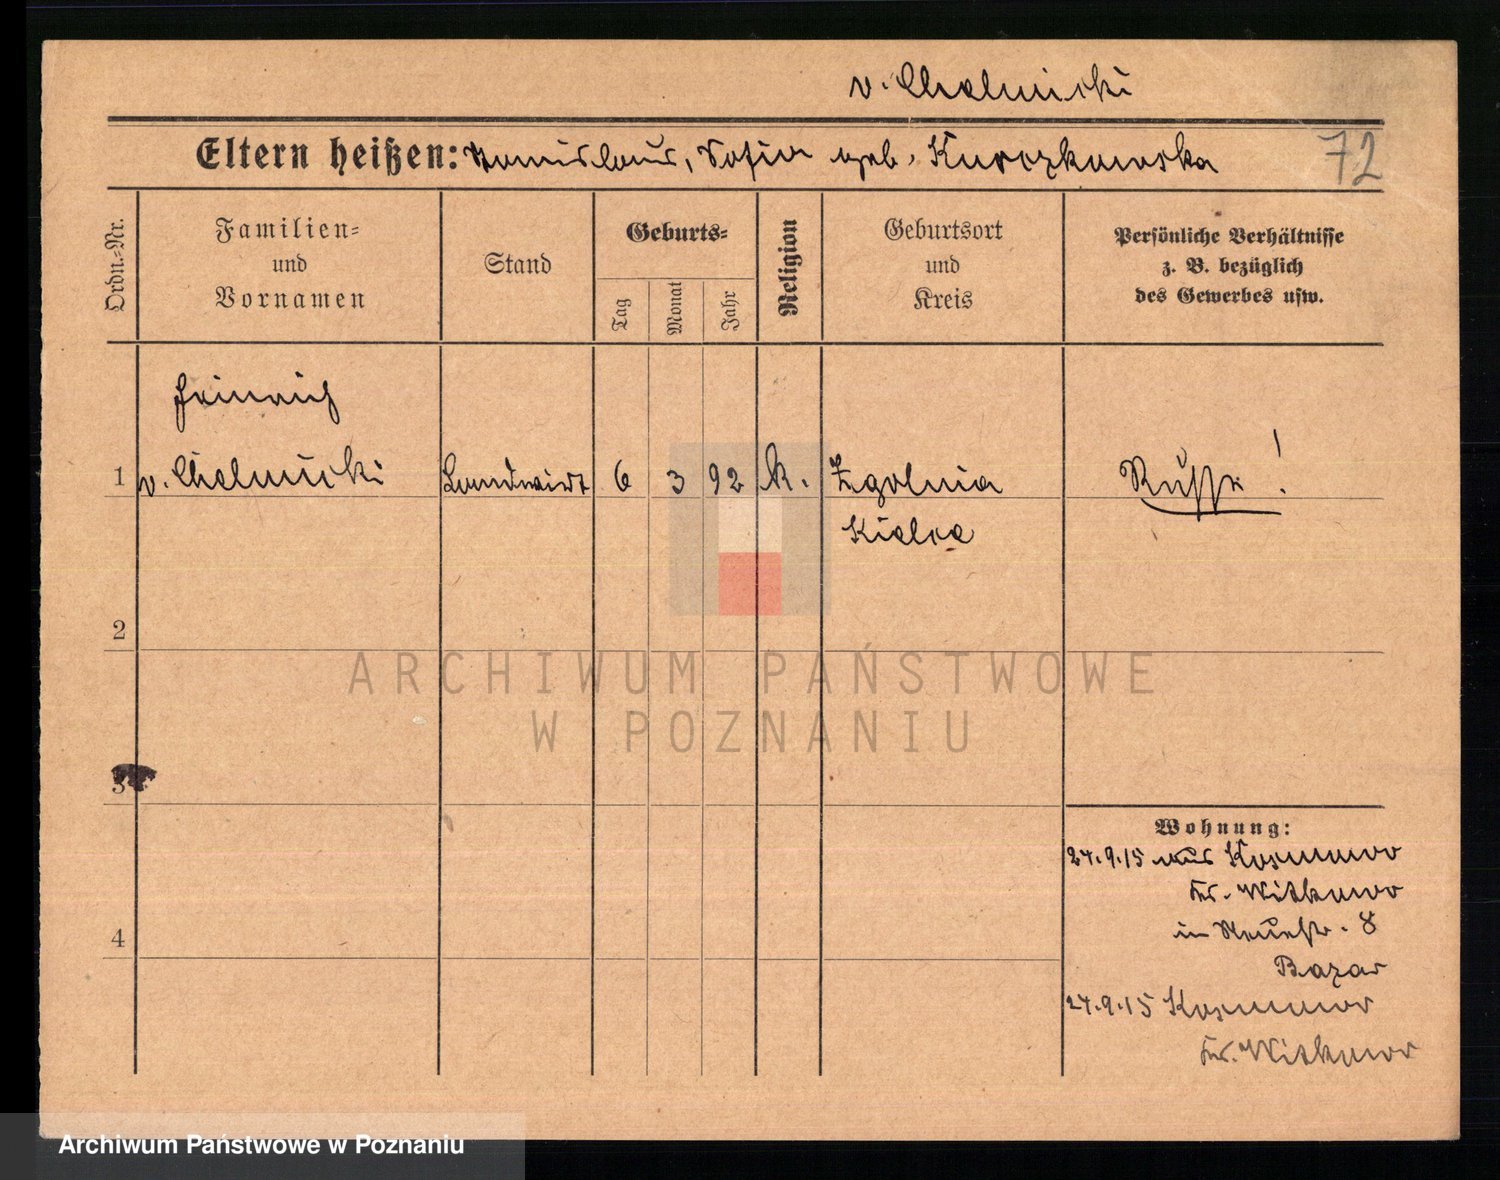 v. Chelmicki
Eltern heißen: Stanislaus, Sofia geb. Kurczkowska
72
Ordn.-Nr.
Familien-
und
Vornamen
Stand
Geburts-
Tag
Monat
Jahr
Religion
Geburtsort
und
Kreis
Persönliche Verhältnisse
z. B. bezüglich
des Gewerbes usw.
Heinrich
1 v. Chelmicki Landwirt 6 3 92 k. Zgolnia Russe!
Kielce
2
ARCHIWUM PAŃSTWOWE
W POZNANIU
3
Wohnung:
24.9.15 aus
Kr. Witkowo
in Neuestr. 8
4
Bazar
24.9.15
Kr. Witkowo
Archiwum Państwowe w Poznaniu